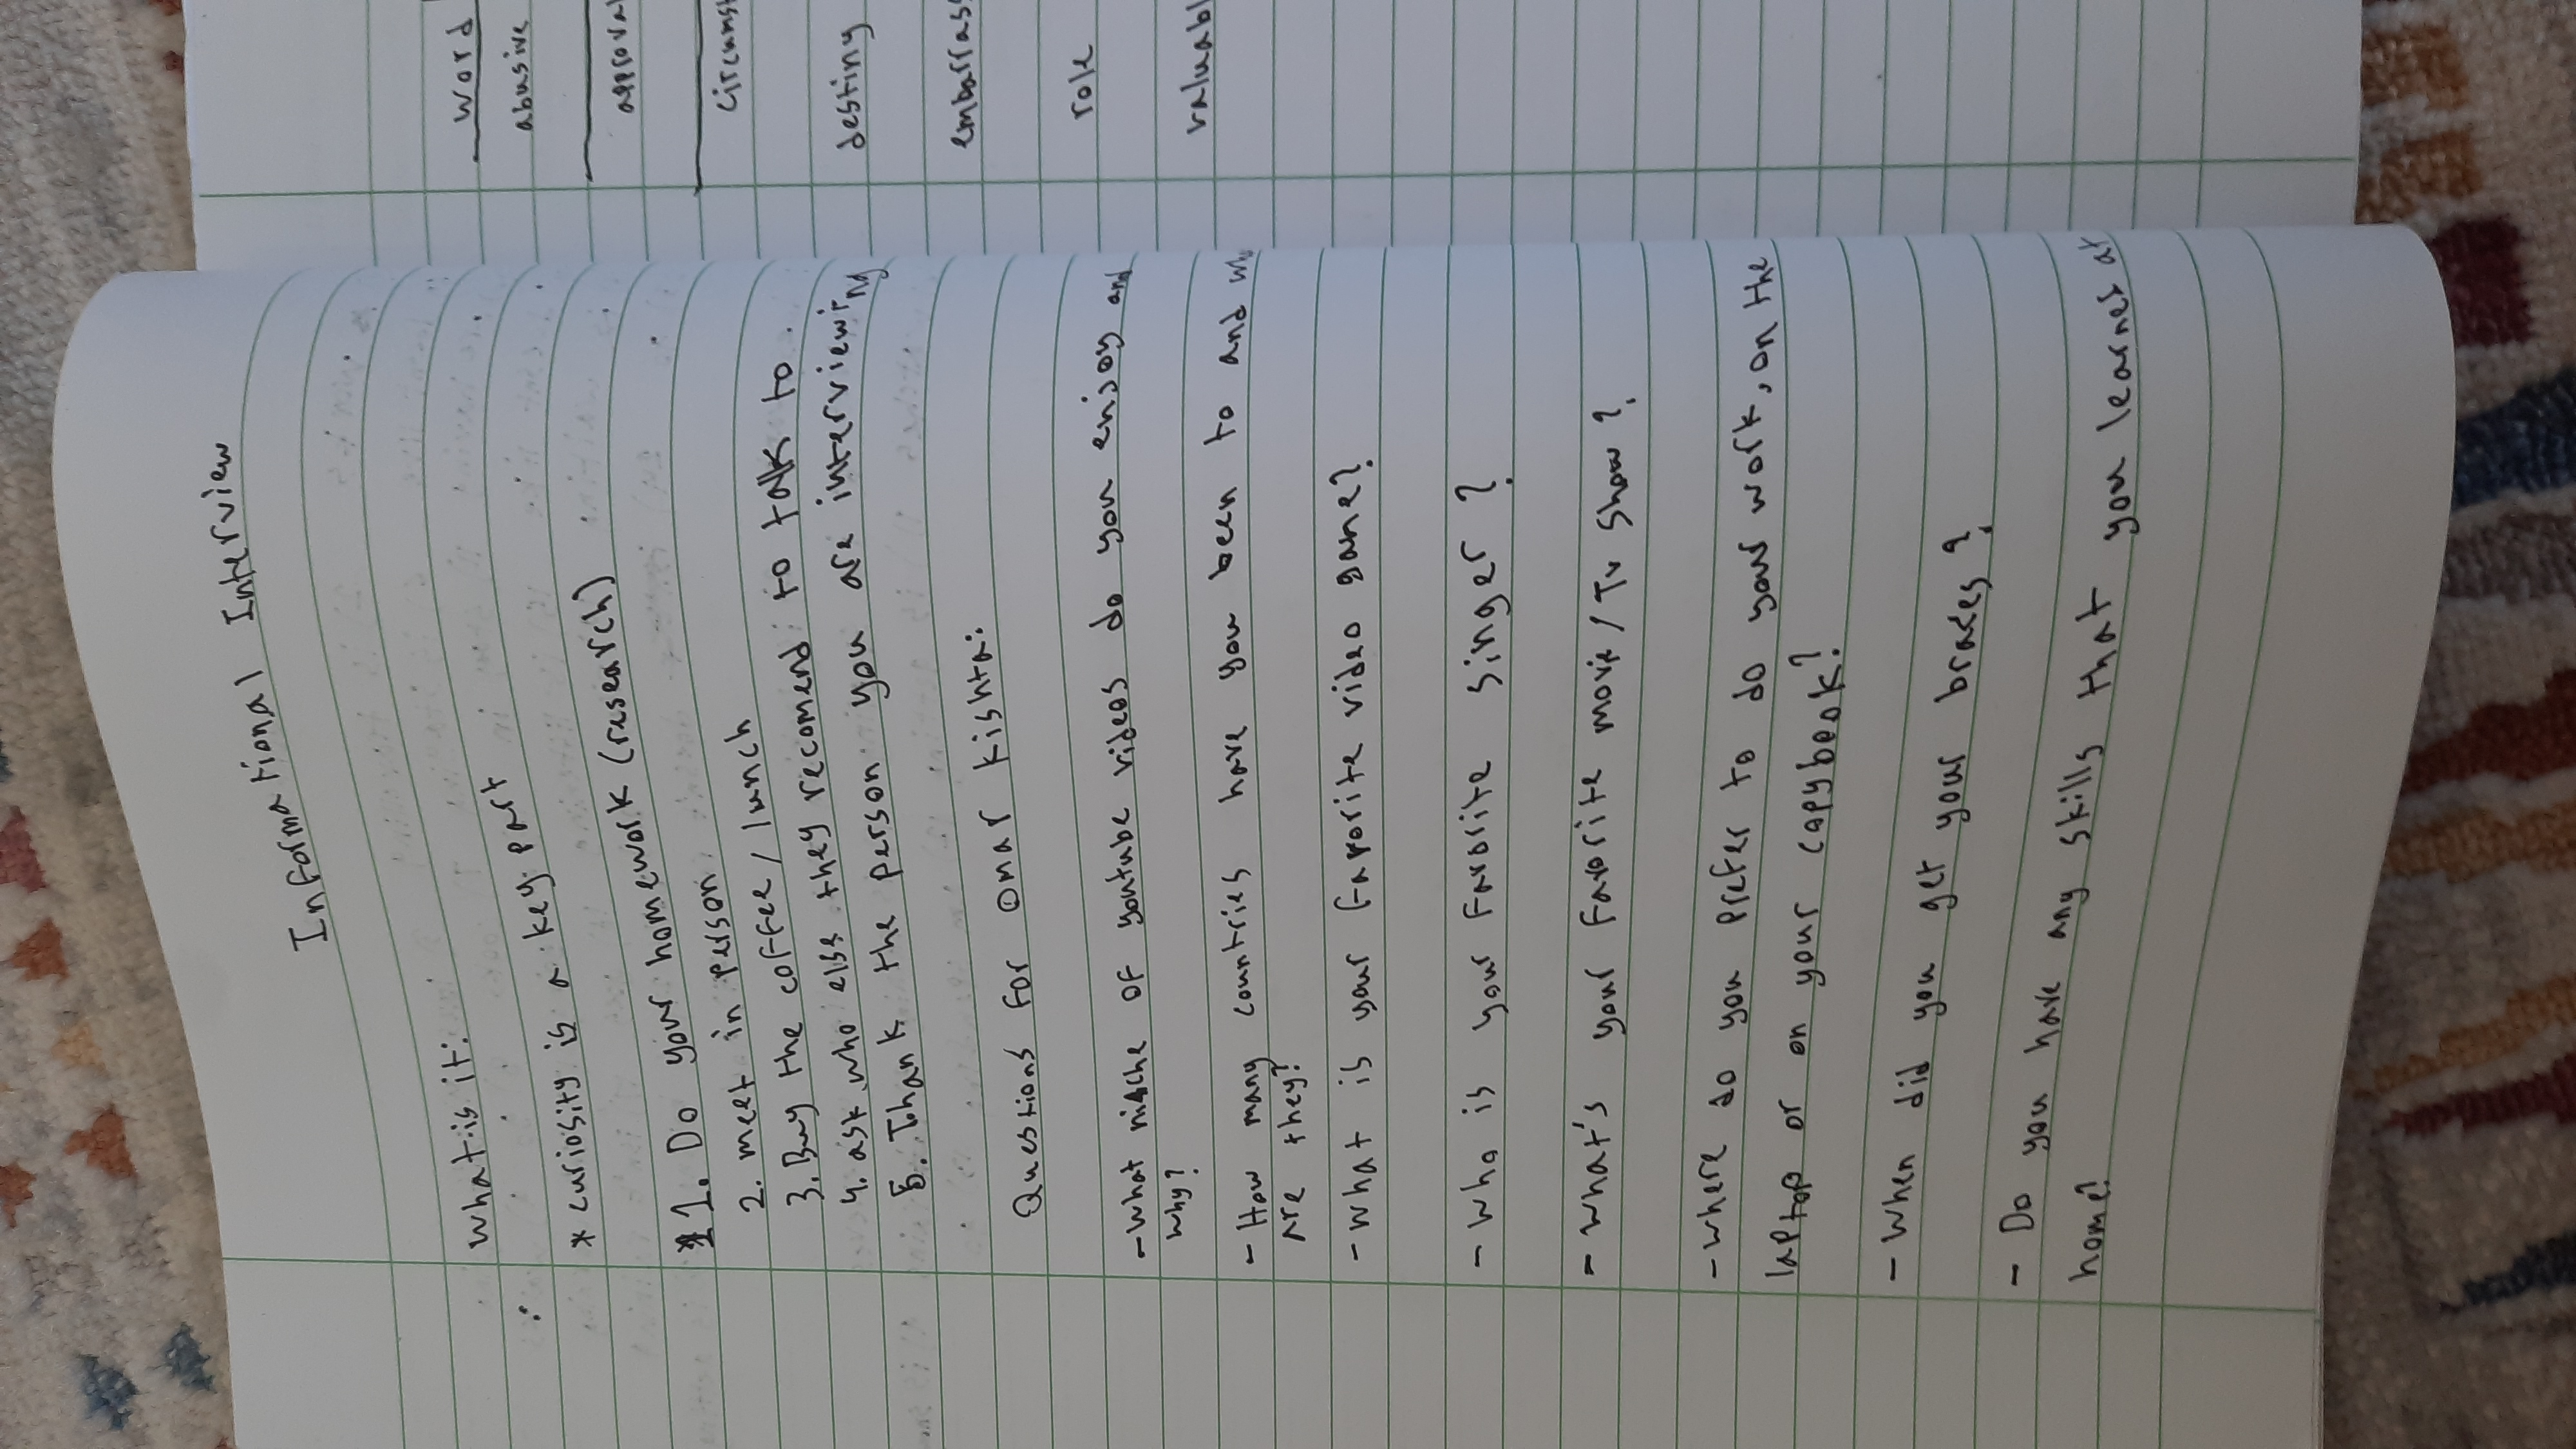 Informational Interview
What is it:
* curiosity is a key part
1. Do your homework (research)
2. meet in person
3. Buy the coffee / lunch
4. ask who else they recomend to talk to.
5. Thank the person you are interviewing
Questions for Omar Kishta:
- What niche of youtube videos do you enjoy and
why?
- How many countries have you been to and
are they?
- What is your favorite video game?
- Who is your favorite singer?
- What's your favorite movie / Tv show?
- where do you prefer to do your work, on the
laptop or on your copybook?
- When did you get your braces?
- Do you have any skills that you learnes at
home?
word
abusive
approval
circumst
destiny
embarrass
role
valuabl